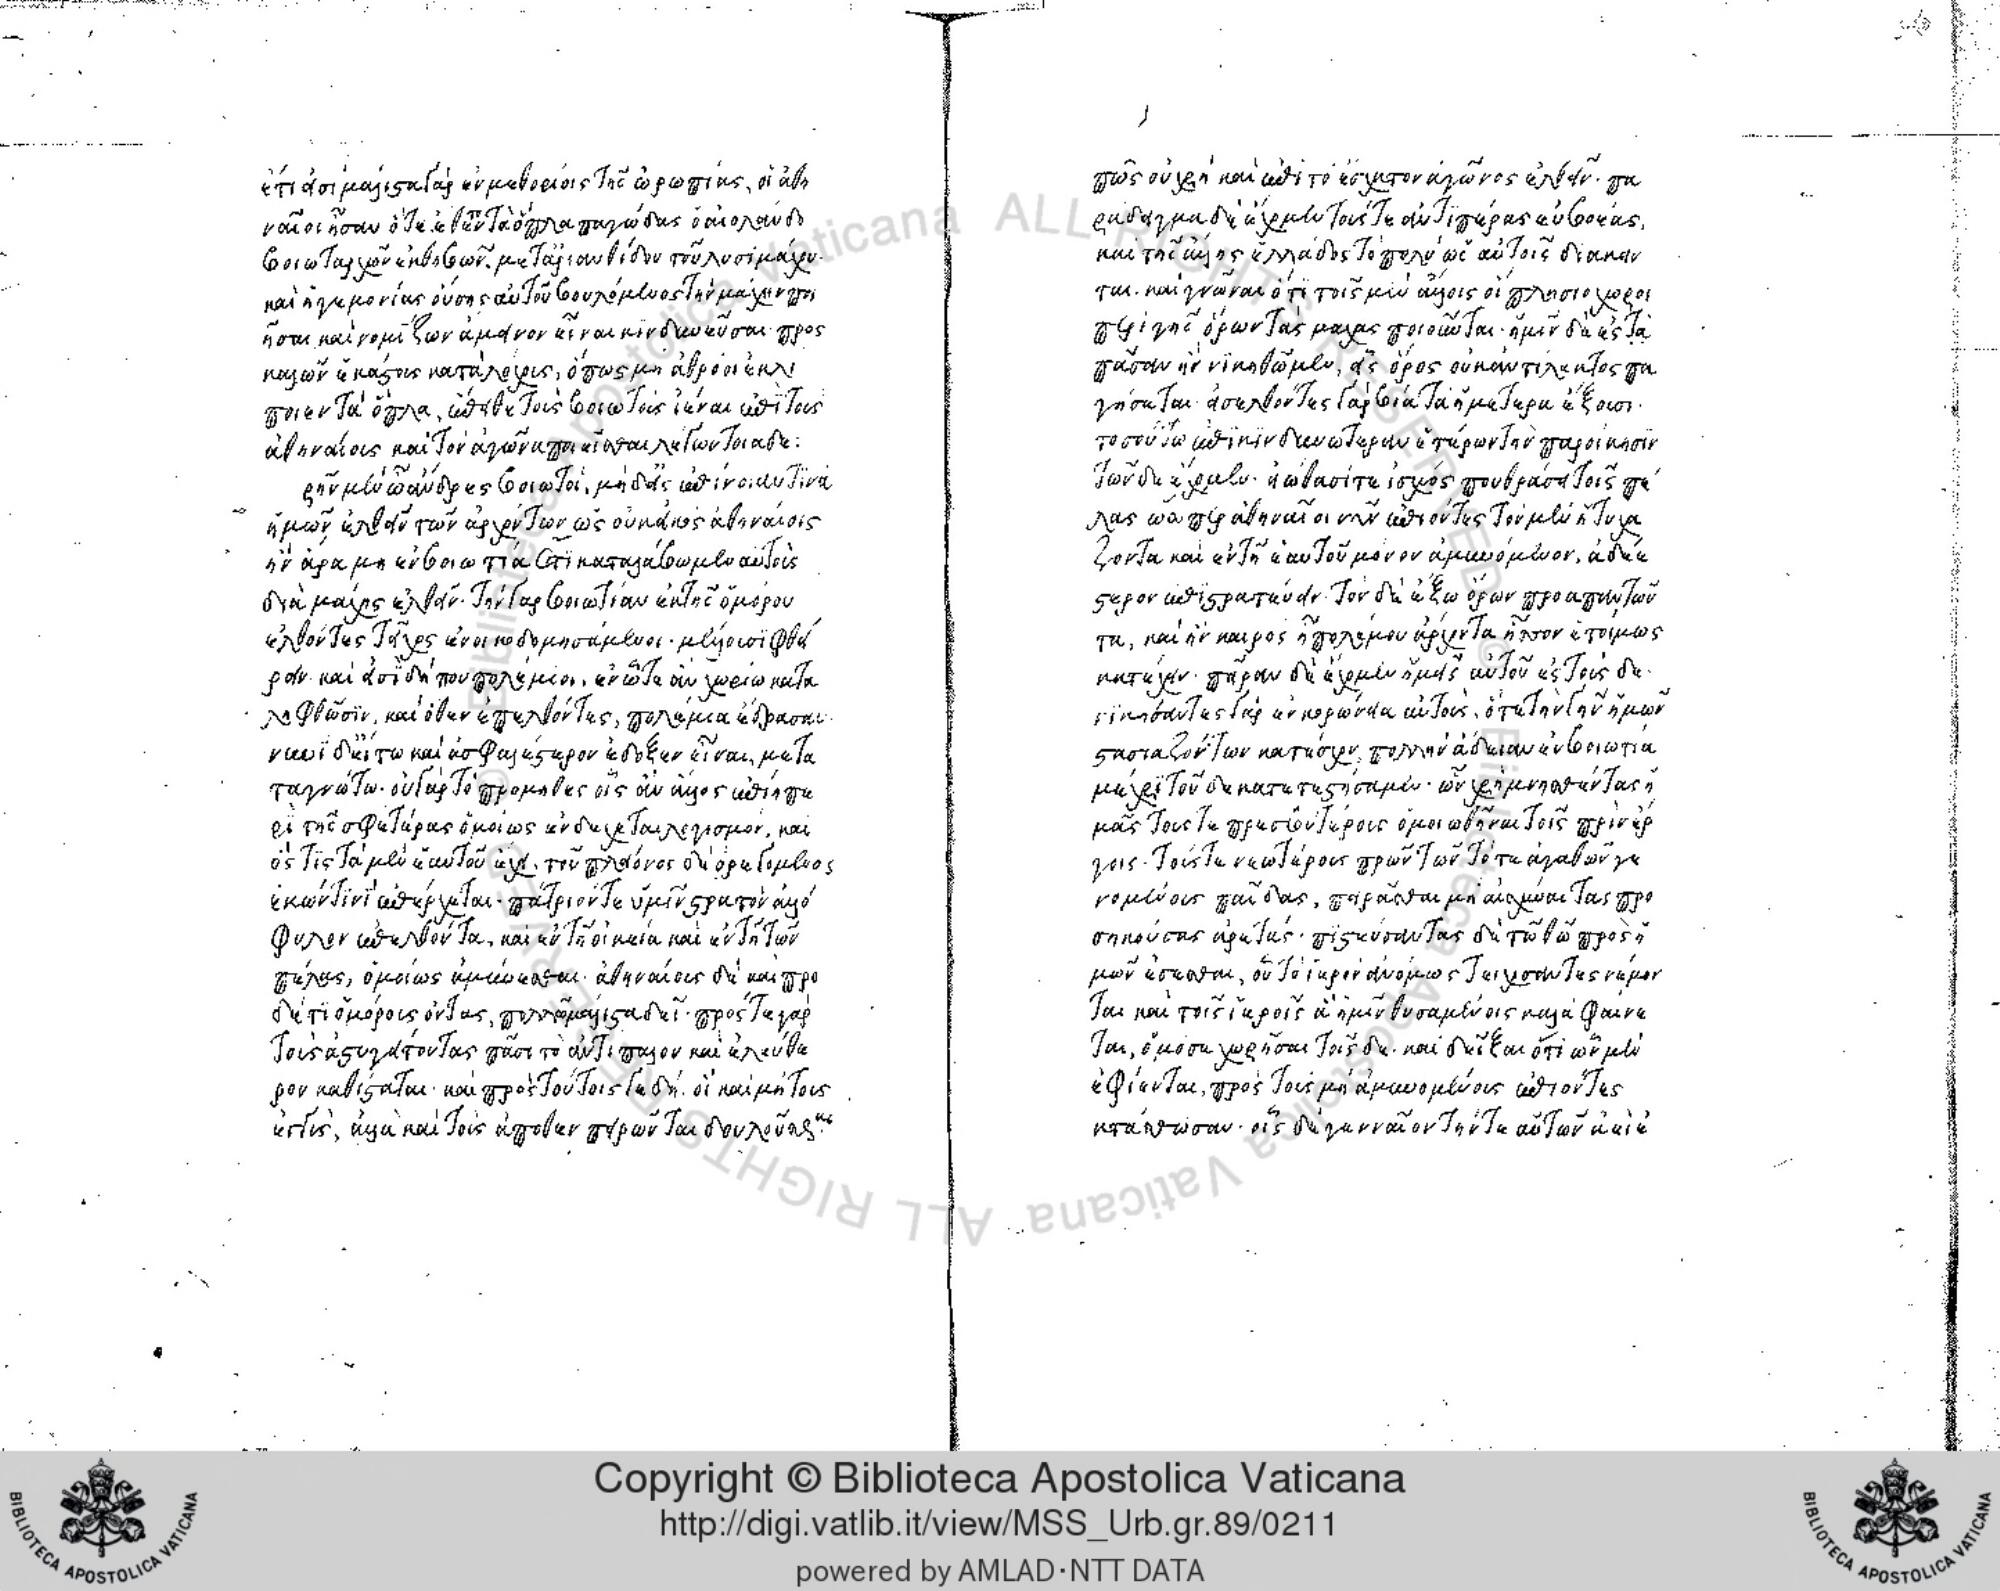 ἔτι εἰσί μάλιστα γὰρ ἐν μεθορίοις τῆς ὠρωπίας, οἱ ἀθη
ναῖοι ἦσαν ὅτε ἔθεντο τὰ ὅπλα παγώδας ὁ αἰολάνδου
βοιωταρχῶν ἐκ θηβῶν. μετ' ἀριανθίδου τοῦ λυσιμάχου.
καὶ ἡγεμονίας οὔσης αὐτοῦ βουλόμενος τὴν μάχην ποι
ῆσαι καὶ νομίζων ἄμεινον εἶναι κινδυνεῦσαι. προς
καλῶν ἑκάστους κατὰ λόχους, ὅπως μὴ ἀθρόοι ἐκλί
ποιεν τὰ ὅπλα, ἔπειθε τοὺς βοιωτοὺς ἰέναι ἐπὶ τοὺς
ἀθηναίους καὶ τὸν ἀγῶνα ποιεῖσθαι λέγων τοιάδε:
ρῆν μὲν ὦ ἄνδρες βοιωτοί, μὴ δ' ἐς ἐπίνοιαν τινὰ
ἡμῶν ἐλθεῖν τῶν ἀρχόντων ὡς οὐκ εἰκὸς ἀθηναίοις
ἢν ἄρα μὴ ἐν βοιωτία ἔτι καταλάβωμεν αὐτοὺς
διὰ μάχης ἐλθεῖν. τὴν γὰρ βοιωτίαν ἐκ τῆς ὁμόρου
ἐλθόντες τεῖχος ἐνοικοδομησάμενοι. μέλλουσι φθεί
ρειν. καὶ εἰσὶ δήπου πολέμιοι, ἐν ᾧ τε ἂν χωρίω κατα
ληφθῶσιν, καὶ ὅθεν ἐπελθόντες, πολέμια ἔδρασαν.
νυνὶ δ' εἴ τω καὶ ἀσφαλέστερον ἔδοξεν εἶναι, μετα
ταγνώτω. οὐ γὰρ τὸ προμηθὲς οἷς ἂν ἄλλος ἐπίη πε
ρὶ τῆς σφετέρας ὁμοίως ἐνδέχεται λογισμόν, καὶ
ὅστις τὰ μὲν ἑαυτοῦ ἔχει. τοῦ πλείονος δὲ ὀρεγόμενος
ἑκών τινὶ ἐπέρχεται. πάτριόν τε ὑμῖν στρατὸν ἀλλό
φυλον ἐπελθόντα, καὶ ἐν τῇ οἰκεία καὶ ἐν τῇ τῶν
πέλας, ὁμοίως ἀμύνεσθαι. ἀθηναίους δὲ καὶ προ
δέτι ὁμόρους ὄντας, πολλῶ μάλιστα δεῖ. πρός τε γὰρ
τοὺς ἀστυγείτονας πᾶσι τὸ ἀντίπαλον καὶ ἐλεύθε
ρον καθίσταται. καὶ πρὸς τούτοις γε δή. οἳ καὶ μὴ τοὺς
ἐγγὺς, ἀλλὰ καὶ τοὺς ἄποθεν πειρῶνται δουλοῦσθαι
πῶς οὐ χρὴ καὶ ἐπὶ τὸ ἔσχατον ἀγῶνος ἐλθεῖν. πα
ράδειγμα δὲ ἔχομεν τούς τε ἀντιπέρας εὐβοέας,
καὶ τῆς ἄλλης ἑλλάδος τὸ πολὺ ὡς αὐτοῖς διάκει
ται. καὶ γνῶναι ὅτι τοῖς μὲν ἄλλοις οἱ πλησιόχωροι
περὶ γῆς ὅρων τὰς μάχας ποιοῦνται. ἡμῖν δὲ ἐς τὰ
πᾶσαν ἢν νικηθῶμεν, εἷς ὅρος οὐκ ἀντίλεκτος πα
γήσεται. ἐσελθόντες γὰρ βία τὰ ἡμέτερα ἕξουσι.
τοσούτω ἐπικινδυνωτέραν ἑτέρων τὴν παροίκησιν
τῶνδε ἔχομεν. εἰώθασί τε ἰσχύος που θράσει τοῖς πέ
λας ὥσπερ ἀθηναῖοι νῦν ἐπιόντες τὸν μὲν ἡσυχά
ζοντα καὶ ἐν τῇ ἑαυτοῦ μόνον ἀμυνόμενον, ἀδεέ
στερον ἐπιστρατεύειν. τὸν δὲ ἔξω ὅρων προαπαντῶν
τα, καὶ ἢν καιρὸς ἦ πολέμου ἄρχοντα ἧσσον ἑτοίμως
κατέχειν. πεῖραν δὲ ἔχομεν ἡμεῖς αὐτοῦ ἐς τούς δε.
νικήσαντες γὰρ ἐν κορωνεία αὐτοὺς, ὅτε τὴν γῆν ἡμῶν
στασιαζόντων κατέσχον, πολλὴν ἄδειαν ἐν βοιωτία
μέχρι τοῦδε κατεστήσαμεν. ὧν χρὴ μνησθέντας ἡ
μᾶς τούς τε πρεσβυτέρους ὁμοιωθῆναι τοῖς πρὶν ἔρ
γοις. τούς τε νεωτέρους πρῶν τῶν τότε ἀγαθῶν γε
νομένους παῖδας, πειρᾶσθαι μὴ αἰσχύναι τὰς προ
σηκούσας ἀρετάς. πιστεύσαντας δὲ τῶ θῶ πρὸς ἡ
μῶν ἔσεσθαι, οὗ τὸ ἱερὸν ἀνόμως τειχίσαντες νέμον
ται καὶ τοῖς ἱεροῖς ἃ ἡμῖν θυσαμένοις καλὰ φαίνε
ται, ὁμόσε χωρῆσαι τοῖς δε. καὶ δεῖξαι ὅτι ὧν μὲν
ἐφίενται, πρὸς τοὺς μὴ ἀμυνομένους ἐπιόντες
κτάσθωσαν. οἷς δὲ γενναῖον τήν τε αὑτῶν ἀεὶ ἐ
Copyright © Biblioteca Apostolica Vaticana
http://digi.vatlib.it/view/MSS_Urb.gr.89/0211
powered by AMLAD·NTT DATA